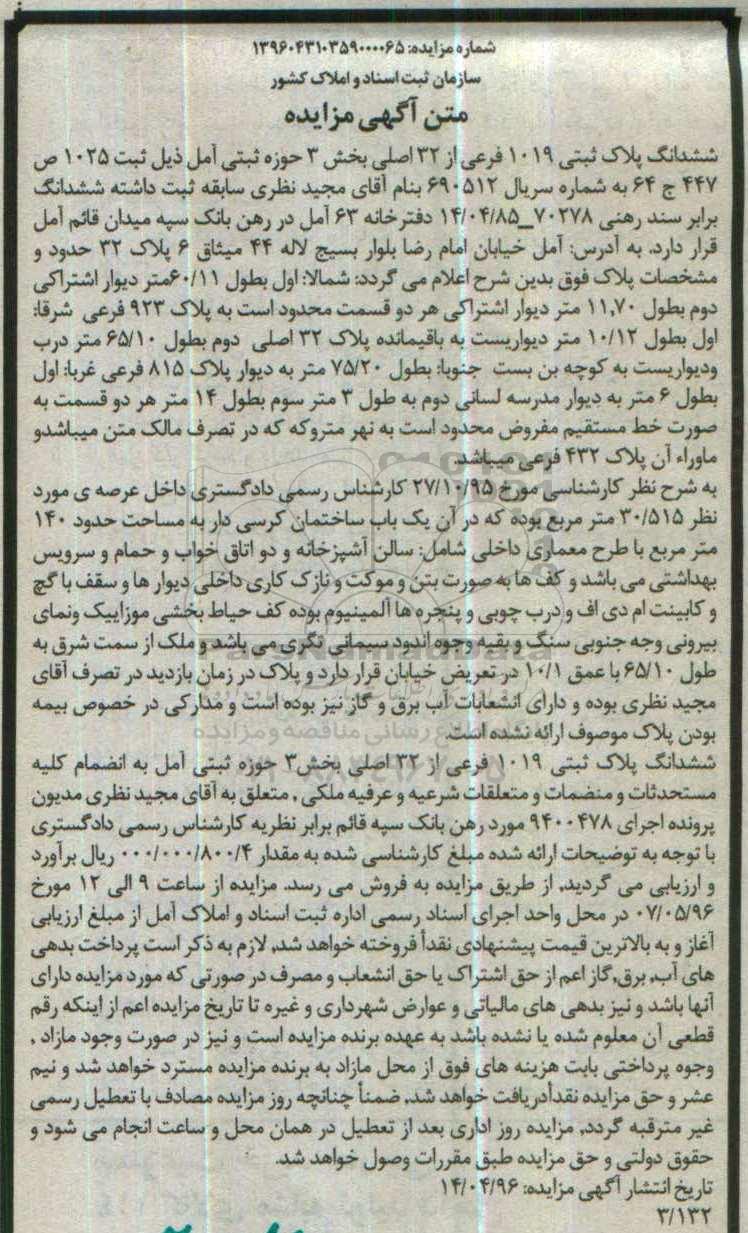 شماره مزایده: ۱۳۹۶۰۴۳۱۰۳۵۹۰۰۰۰۶۵
سازمان ثبت اسناد و املاک کشور
متن آگهی مزایده
ششدانگ پلاک ثبتی ۱۰۱۹ فرعی از ۳۲ اصلی بخش ۳ حوزه ثبتی آمل ذیل ثبت ۱۰۲۵ ص
۴۴۷ ج ۶۴ به شماره سریال ۶۹۰۵۱۲ بنام آقای مجید نظری سابقه ثبت داشته ششدانگ
برابر سند رهنی ۷۰۲۷۸_۱۴/۰۴/۸۵ دفترخانه ۶۳ آمل در رهن بانک سپه میدان قائم آمل
قرار دارد. به آدرس: آمل خیابان امام رضا بلوار بسیج لاله ۴۴ میثاق ۶ پلاک ۳۲ حدود و
مشخصات پلاک فوق بدین شرح اعلام می گردد: شمالا: اول بطول ۶۰/۱۱متر دیوار اشتراکی
دوم بطول ۱۱,۷۰ متر دیوار اشتراکی هر دو قسمت محدود است به پلاک ۹۲۳ فرعی شرقا:
اول بطول ۱۰/۱۲ متر دیواریست به باقیمانده پلاک ۳۲ اصلی دوم بطول ۶۵/۱۰ متر درب
ودیواریست به کوچه بن بست جنوبا: بطول ۷۵/۲۰ متر به دیوار پلاک ۸۱۵ فرعی غربا: اول
بطول ۶ متر به دیوار مدرسه لسانی دوم به طول ۳ متر سوم بطول ۱۴ متر هر دو قسمت به
صورت خط مستقیم مفروض محدود است به نهر متروکه که در تصرف مالک متن میباشدو
ماوراء آن پلاک ۴۳۲ فرعی میباشد.
به شرح نظر کارشناسی مورخ ۲۷/۱۰/۹۵ کارشناس رسمی دادگستری داخل عرصه ی مورد
نظر ۳۰/۵۱۵ متر مربع بوده که در آن یک باب ساختمان کرسی دار به مساحت حدود ۱۴۰
متر مربع با طرح معماری داخلی شامل: سالن آشپزخانه و دو اتاق خواب و حمام و سرویس
بهداشتی می باشد و کف ها به صورت بتن و موکت و نازک کاری داخلی دیوار ها و سقف با گچ
و کابینت ام دی اف و درب چوبی و پنجره ها آلمینیوم بوده کف حیاط بخشی موزاییک ونمای
بیرونی وجه جنوبی سنگ و بقیه وجوه اندود سیمانی نگری می باشد و ملک از سمت شرق به
طول ۶۵/۱۰ با عمق ۱۰/۱ در تعریض خیابان قرار دارد و پلاک در زمان بازدید در تصرف آقای
مجید نظری بوده و دارای انشعابات آب برق و گاز نیز بوده است و مدارکی در خصوص بیمه
بودن پلاک موصوف ارائه نشده است.
ششدانگ پلاک ثبتی ۱۰۱۹ فرعی از ۳۲ اصلی بخش۳ حوزه ثبتی آمل به انضمام کلیه
مستحدثات و منضمات و متعلقات شرعیه و عرفیه ملکی , متعلق به آقای مجید نظری مدیون
پرونده اجرای ۹۴۰۰۴۷۸ مورد رهن بانک سپه قائم برابر نظریه کارشناس رسمی دادگستری
با توجه به توضیحات ارائه شده مبلغ کارشناسی شده به مقدار ۰۰۰/۰۰۰/۸۰۰/۴ ریال برآورد
و ارزیابی می گردید, از طریق مزایده به فروش می رسد. مزایده از ساعت ۹ الی ۱۲ مورخ
۰۷/۰۵/۹۶ در محل واحد اجرای اسناد رسمی اداره ثبت اسناد و املاک آمل از مبلغ ارزیابی
آغاز و به بالاترین قیمت پیشنهادی نقداً فروخته خواهد شد, لازم به ذکر است پرداخت بدهی
های آب, برق,گاز اعم از حق اشتراک یا حق انشعاب و مصرف در صورتی که مورد مزایده دارای
آنها باشد و نیز بدهی های مالیاتی و عوارض شهرداری و غیره تا تاریخ مزایده اعم از اینکه رقم
قطعی آن معلوم شده یا نشده باشد به عهده برنده مزایده است و نیز در صورت وجود مازاد ,
وجوه پرداختی بابت هزینه های فوق از محل مازاد به برنده مزایده مسترد خواهد شد و نیم
عشر و حق مزایده نقداًدریافت خواهد شد, ضمناً چنانچه روز مزایده مصادف با تعطیل رسمی
غیر مترقبه گردد, مزایده روز اداری بعد از تعطیل در همان محل و ساعت انجام می شود و
حقوق دولتی و حق مزایده طبق مقررات وصول خواهد شد.
تاریخ انتشار آگهی مزایده: ۱۴/۰۴/۹۶
۳/۱۳۲